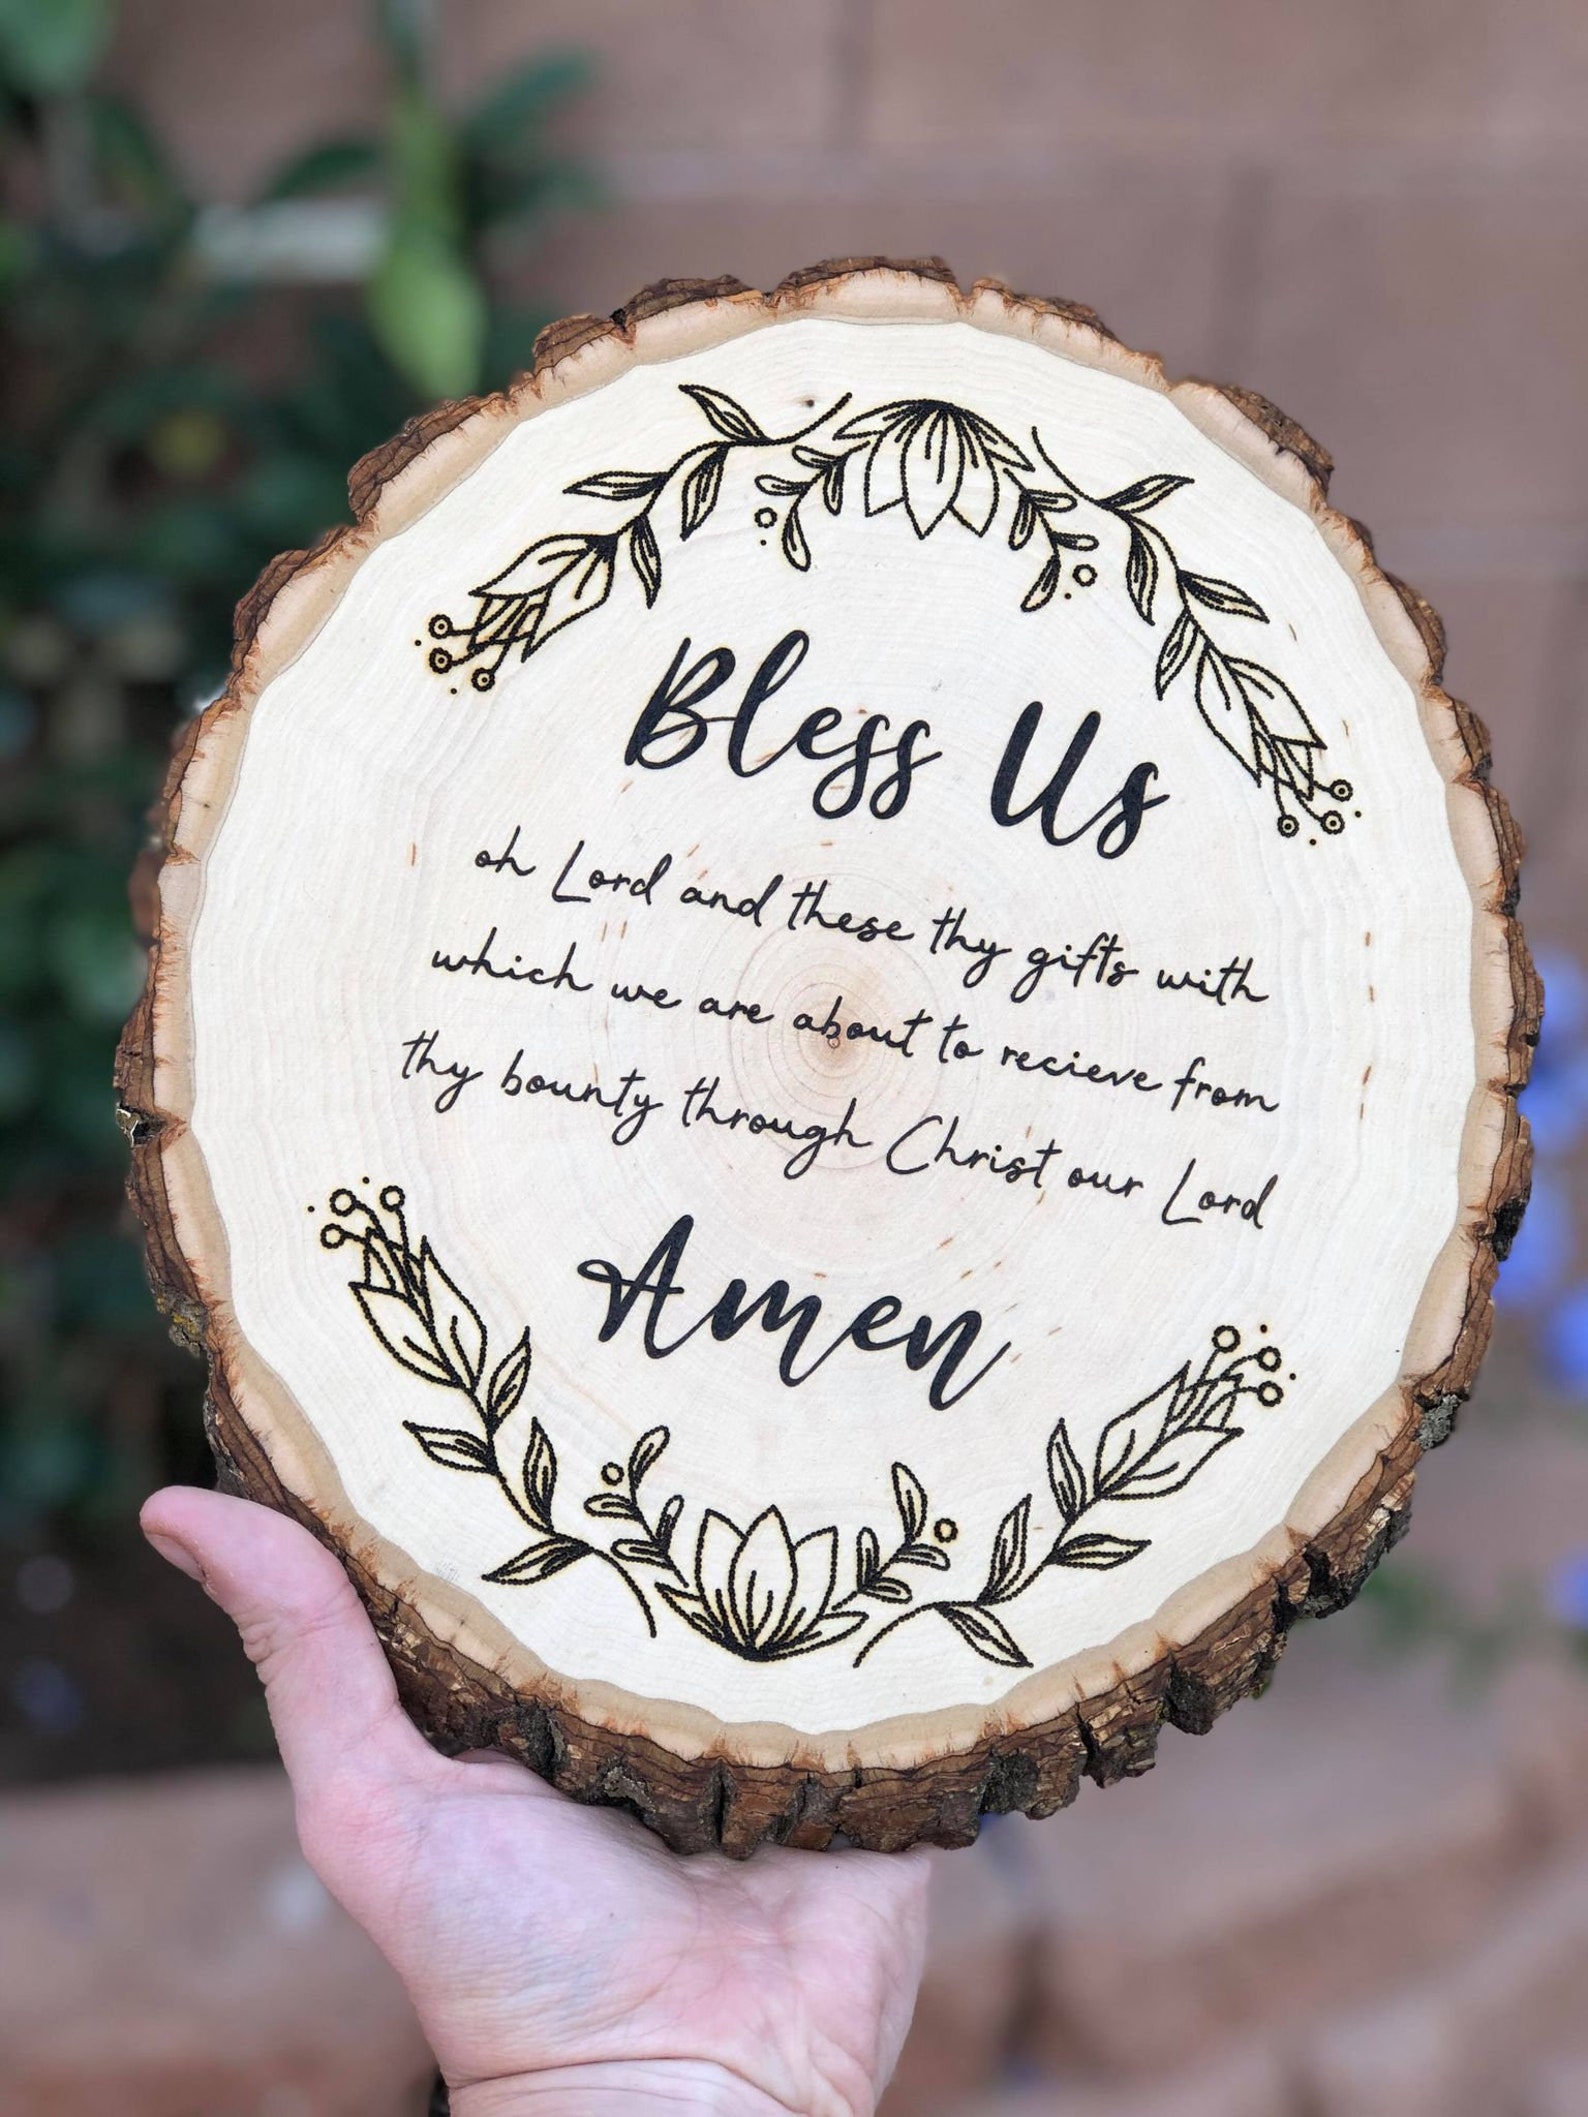 Bless Us
oh Lord and these thy gifts with
which we are about to recieve from
thy bounty through Christ our Lord
Amen